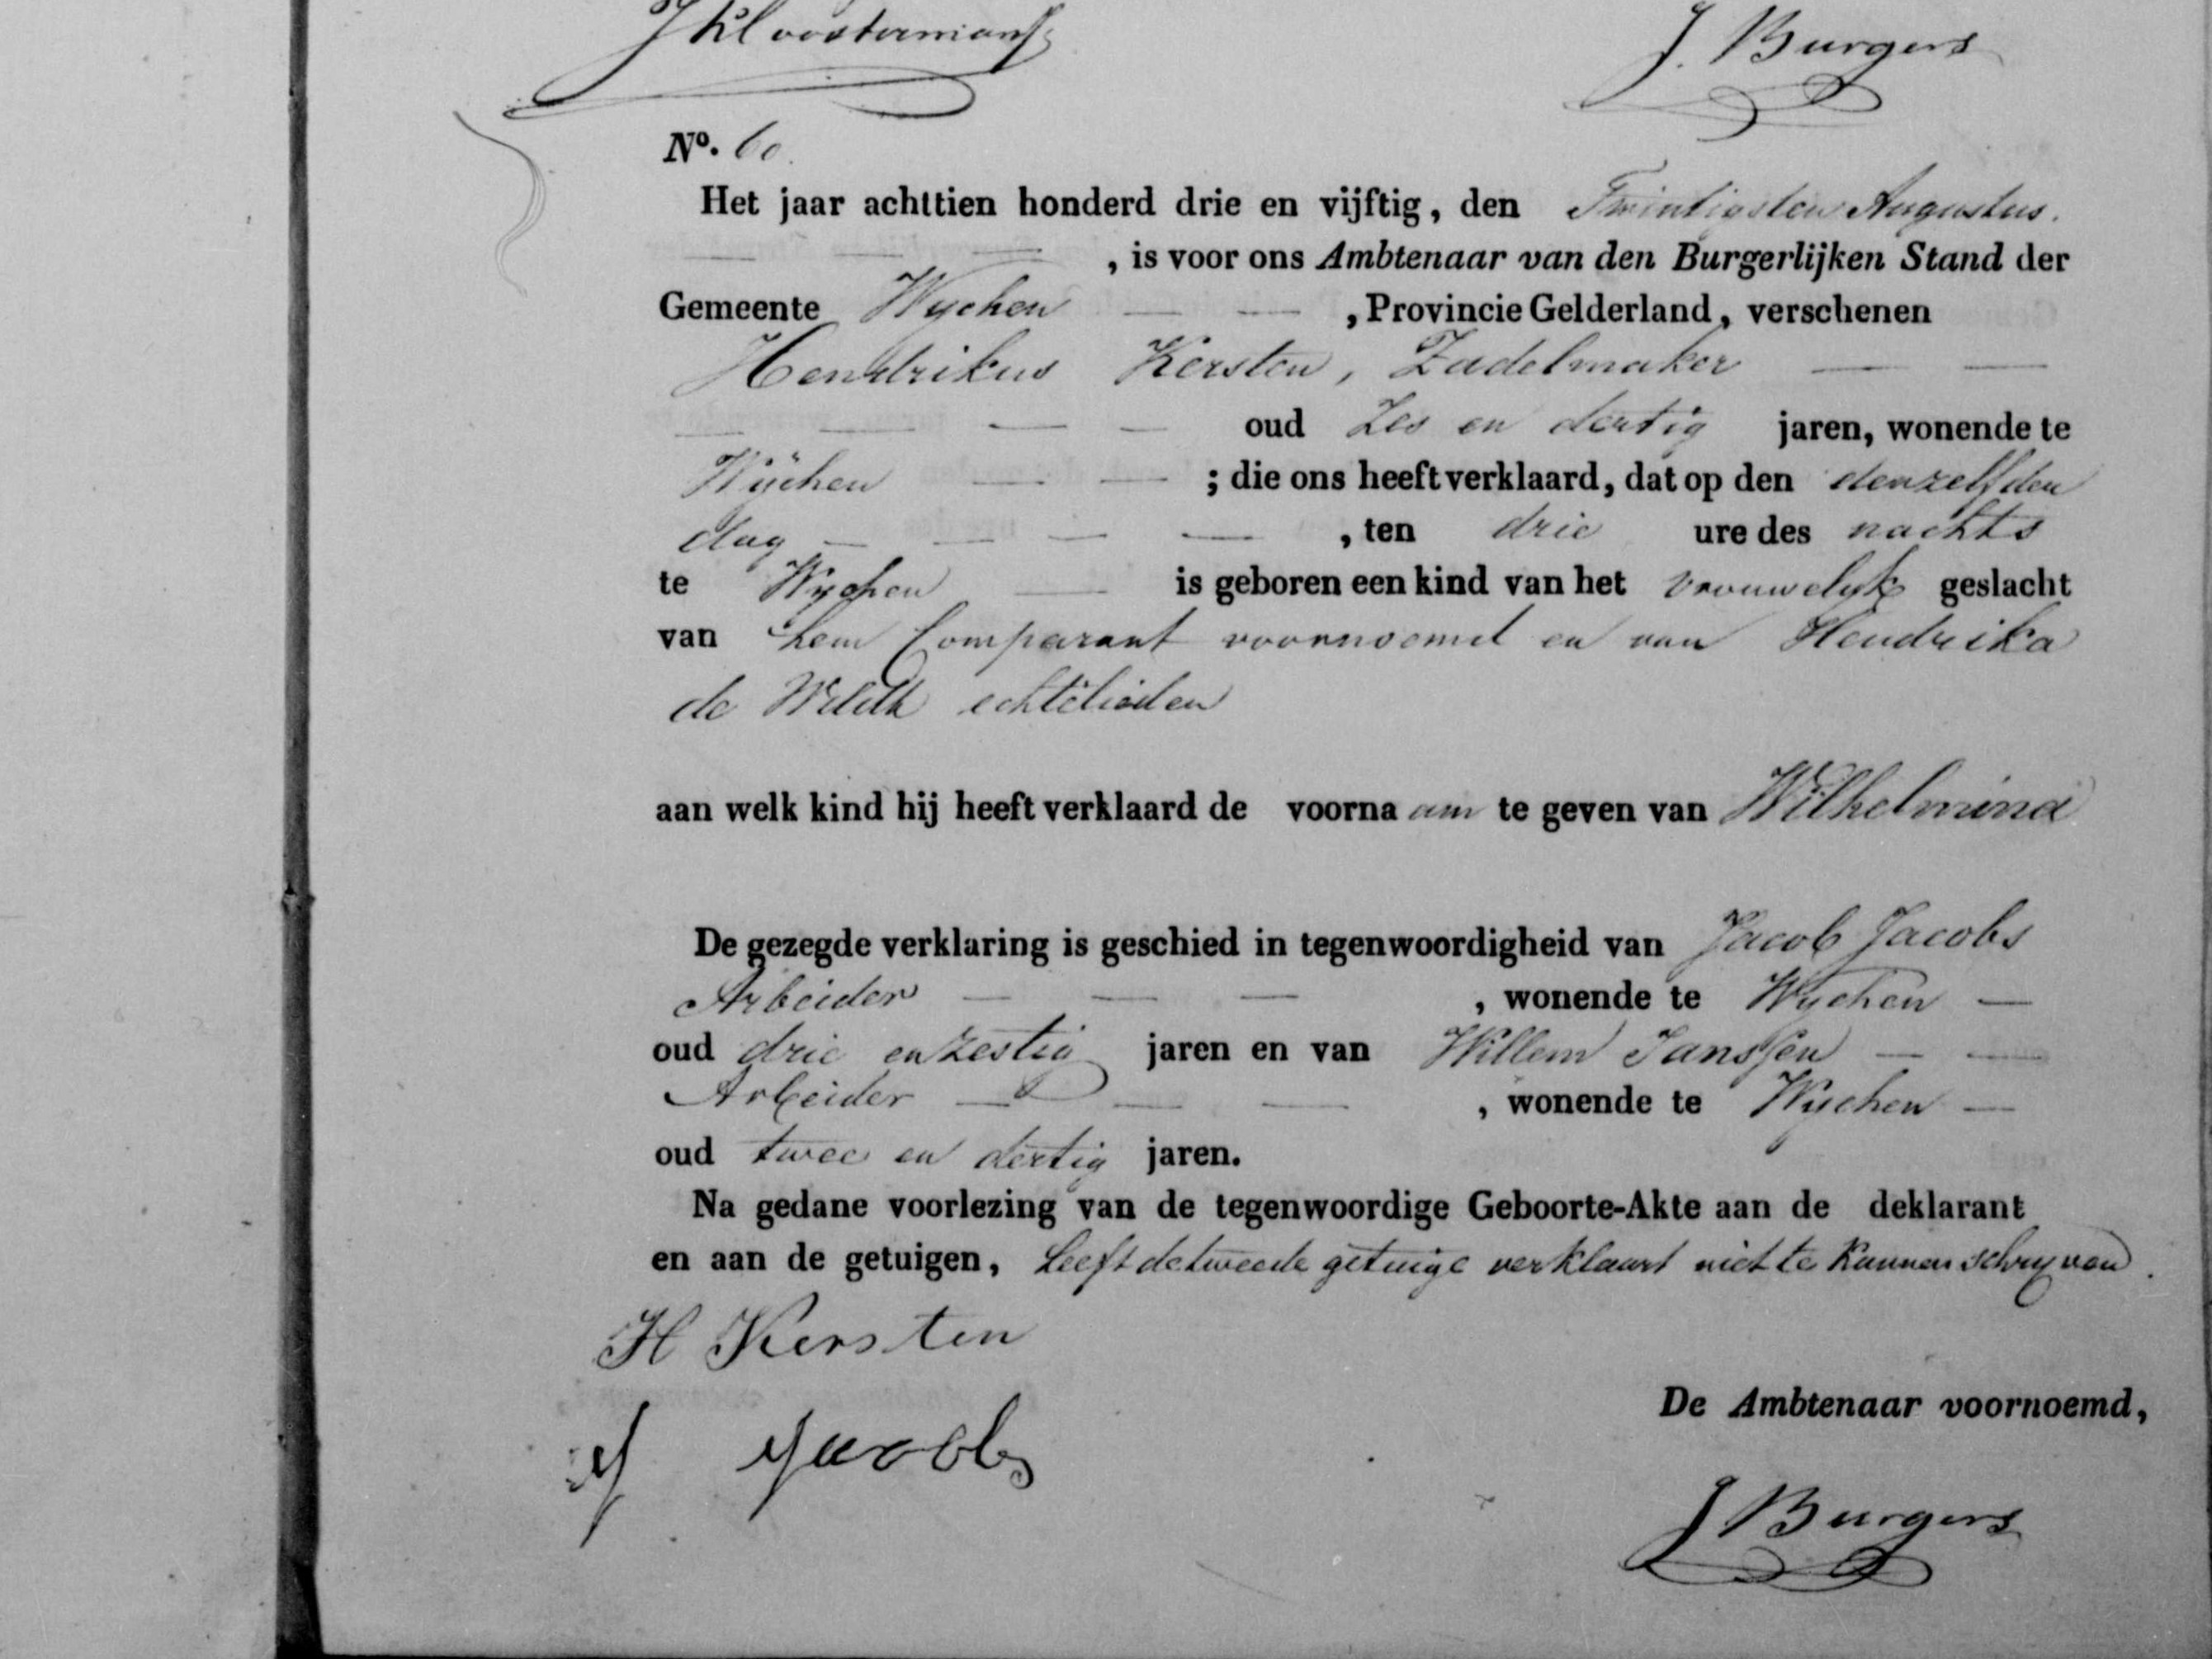 J Kloostermans J. Burgers
No. 60.
Het jaar achttien honderd drie en vijftig, den Twintigsten Augustus.
, is voor ons Ambtenaar van den Burgerlijken Stand der
Gemeente Wychen , Provincie Gelderland, verschenen
Hendrikus Kersten, Zadelmaker
oud Zes en dertig jaren, wonende te
Wÿchen ; die ons heeft verklaard, dat op den denzelfden
dag , ten drie ure des nachts
te Wychen is geboren een kind van het vrouwelyk geslacht
van hem Comparant voornoemd en van Hendrika
de echtelieden
aan welk kind hij heeft verklaard de voorna am te geven van Wilhelmina
De gezegde verklaring is geschied in tegenwoordigheid van Jacob Jacobs
Arbeider , wonende te Wychen
oud drie en zestig jaren en van Willem Janssen
Arbeider , wonende te Wychen
oud twee en dertig jaren.
Na gedane voorlezing van de tegenwoordige Geboorte-Akte aan de deklarant
en aan de getuigen, heeft de tweede getuige verklaart niet te kunnen schryven.
H Kersten
De Ambtenaar voornoemd,
J Jacobs
J Burgers